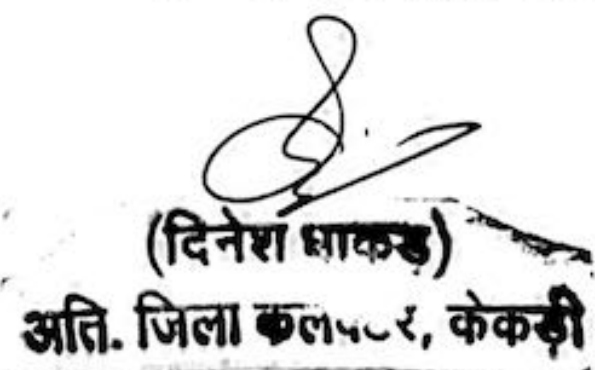 (दिनेश धाकड)
अति. जिला कलक्टर, केकड़ी